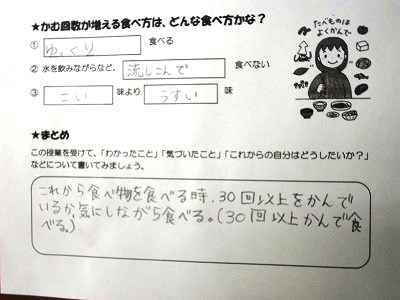 ★かむ回数が増える食べ方は、どんな食べ方かな？
① ゆっくり 食べる
② 水を飲みながらなど、 流しこんで 食べない
③ こい 味より うすい 味
たべものは
よくかんで
★まとめ
この授業を受けて、「わかったこと」「気づいたこと」「これからの自分はどうしたいか？」
などについて書いてみましょう。
これから食べ物を食べる時、30回以上をかんで
いるか気にしながら食べる。(30回以上かんで食
べる。)